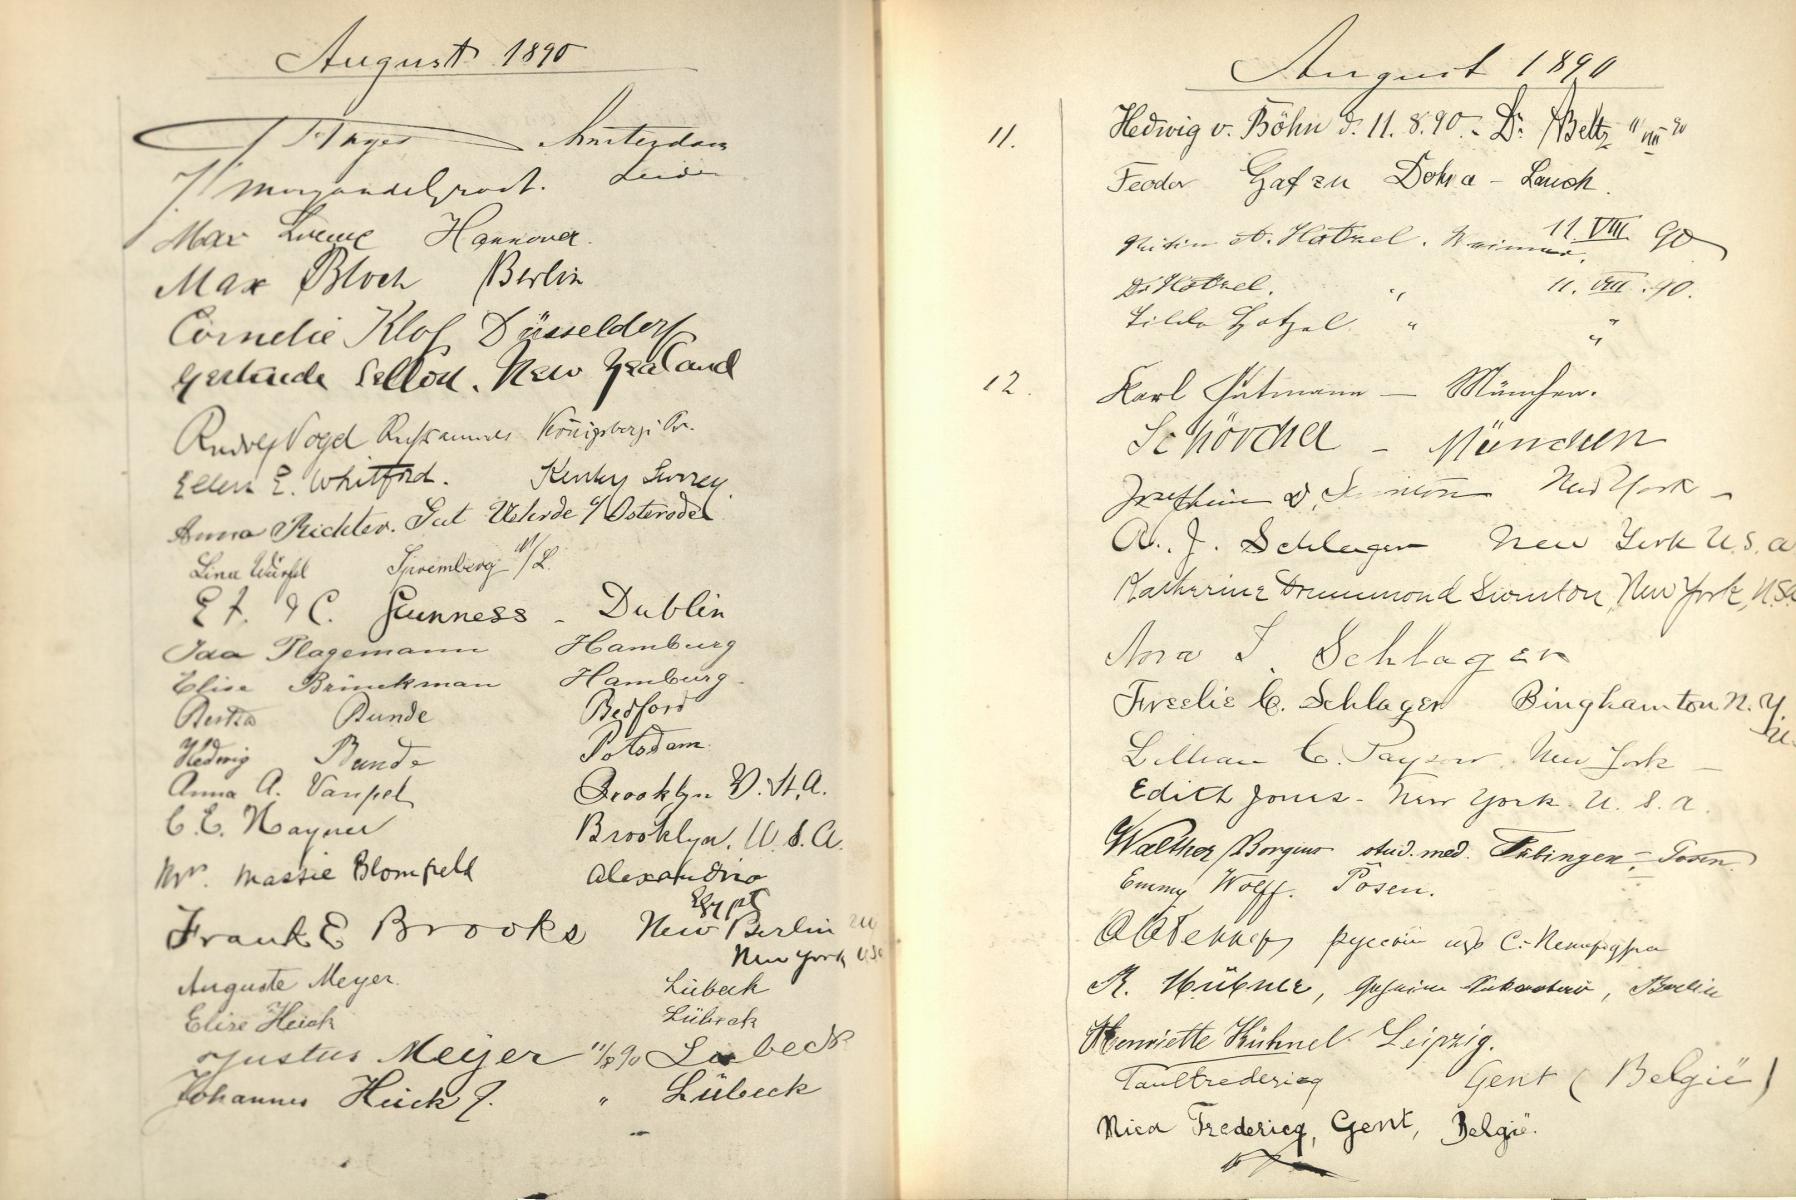 August 1890
Amsterdam
Max Hannover.
Max Bloch Berlin
Cornelie Klof Düsseldorf
Gertrude Sellon. New Zealand
Rudolf Vogel Königsberg i Pr.
Ellen E. Whitford. Kenley Surrey.
Anna Richter. Gut Osterode
Lina Würfel Spremberg /L.
E. F. & C. Guinness - Dublin
Ida Plagemann Hamburg
Elise Brinckman Hamburg.
Bertha Bunde Bedford
Hedwig Bunde Potsdam.
Anna A. Brooklyn V. St. A.
C. E. Brooklyn. U. S. A.
Massie Blomfield Alexandria
Egypt
Frank E Brooks New Berlin
New York USA
Auguste Meyer. Lübeck
Elise Heick Lübeck
Justus Meyer 11/8 90 Lübeck
Johannes Heick J. " Lübeck
August 1890
11. Hedwig v. Böhn d. 11. 8. 90. - Dr. Beltz 11 VIII 90
Feodor Dohna - Lauck.
11 VIII 90
Dr. " 11. VIII. 90.
" "
12. Karl Gutmann — München.
Schörcher - München
Josephine D. New York -
A. J. Schlager New York U.S.A
Katherine Drummond Swinton, New York, U.S.A
Nora I. Schlager
Freelie C. Schlager Binghamton N. Y.
U.
Lillian C. Payson. New York -
Edith Jones - New York. U. S. A.
Walther stud. med. Tübingen - Posen.
Emmy Wolff. Posen.
С.-Петербурга
R. Hübner, Berlin
Henriette Kühnel. Leipzig.
Paul Fredericq Gent (België)
Nica Fredericq, Gent, België.